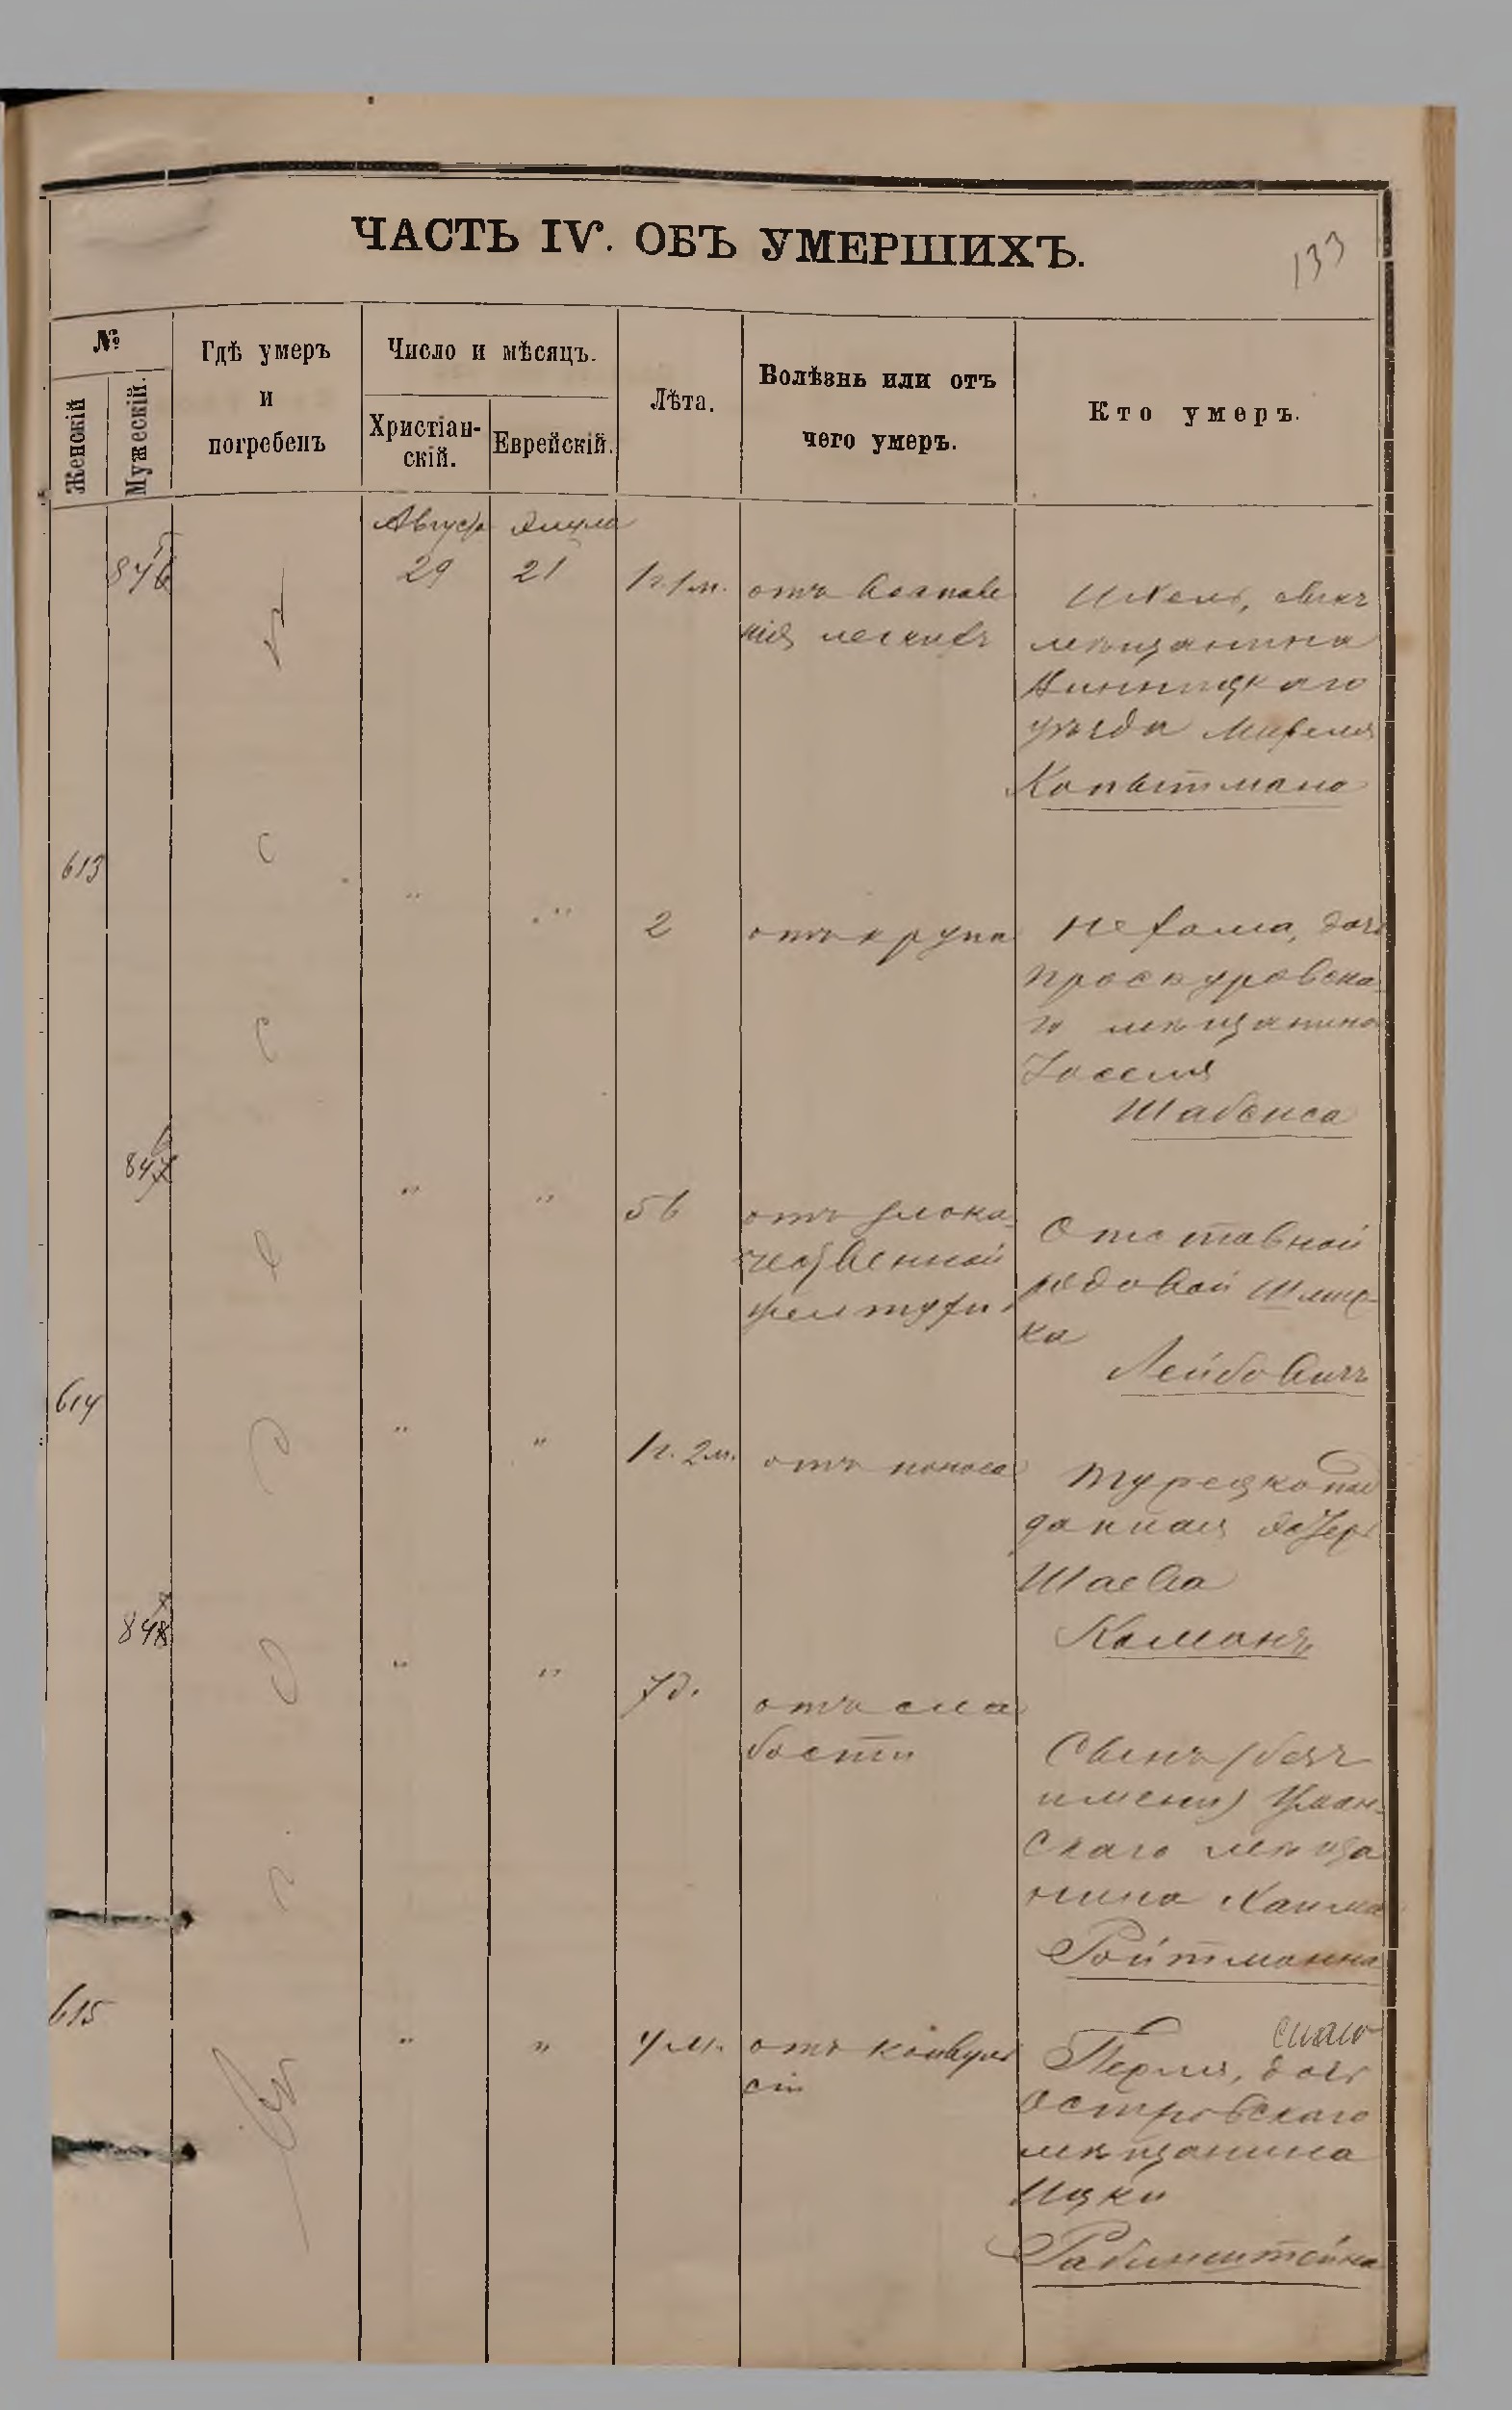 ЧАСТЬ IV. ОБЪ УМЕРШИХЪ.
133
№
Женскій
Мужескій.
Гдѣ умеръ
и
погребенъ
Число и мѣсяцъ.
Христіан-
скій.
Еврейскій.
Лѣта.
Болѣзнь или отъ
чего умеръ.
Кто умеръ.
Август Элула
845
29
21
1г. 1м.
отъ воспале
нія легкихъ
сынъ
мѣщанина
Винницкаго
уѣзда
Копытмана
613
"
"
2
отъ крупа
Нехама, дочь
Проскуровска-
го мѣщанина
Іоселя
Шабсиса
846
"
"
56
отъ злока-
чественной
Отставной
рядовой Шлио-
ка
Лейбовичъ
614
"
"
1г. 2м.
отъ поноса
Турецкопод
данная Эстеръ
Шаева
Каманъ
847
"
"
7д.
отъ сла
бости
Сынъ (безъ
имени) Уман-
скаго мѣща
нина Хаима
Ройтманна
615
"
"
4 м.
отъ конвуль
сіи
Перля, дочь
Островскаго
мѣщанина
Ицки
Рабинштейна